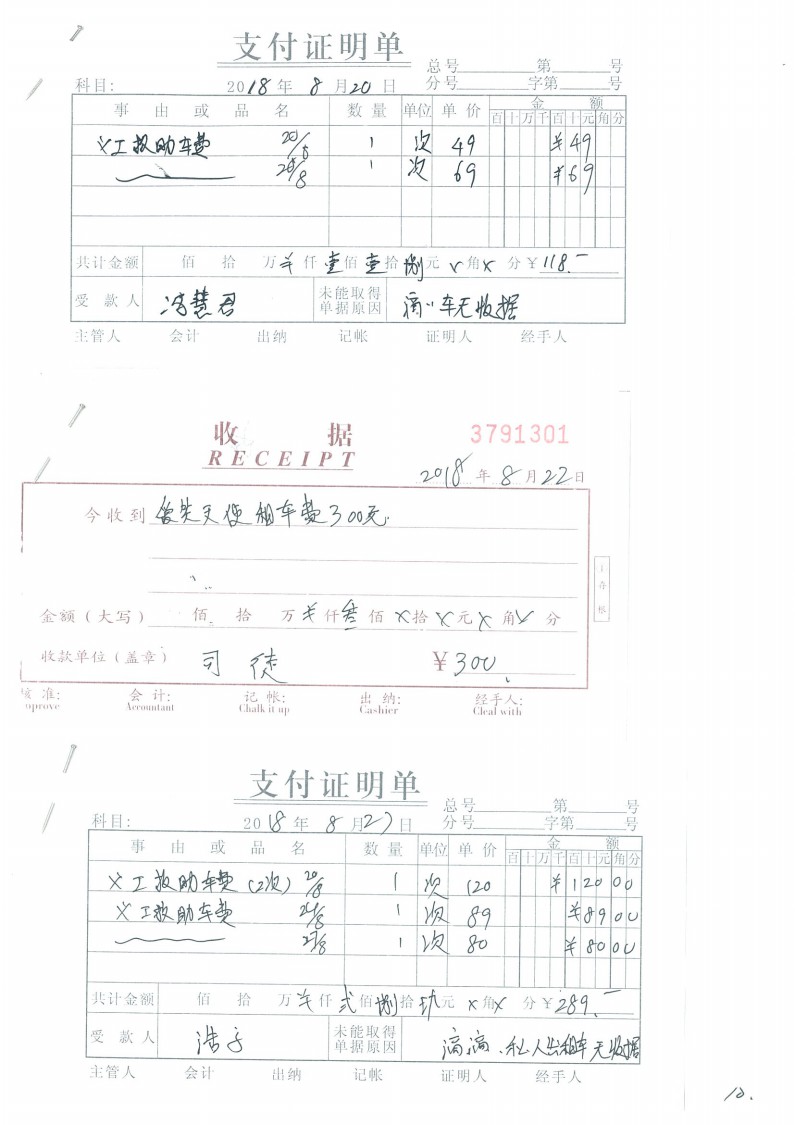 支付证明单
总号 第 号
科目: 2018年8月20日 分号 字第 号
事由或品名 数量 单位 单价 金额
百十万千百十元角分
义工救助车费 20/8 1 次 49 ¥49
1 次 69 ¥69
共计金额 佰 拾 万 仟壹佰壹拾捌元 x角x 分¥118.-
受款人 冯慧君 未能取得单据原因 滴滴车无收据
主管人 会计 出纳 记帐 证明人 经手人
收据 3791301
RECEIPT
2018年8月22日
今收到 天使租车费300元.
金额(大写) 佰 拾 万 仟叁佰x拾x元x角x分
收款单位(盖章) 司徒 ¥300
核准: 会计: 记帐: 出纳: 经手人:
Approve Accountant Chalk it up Cashier Cleal with
支付证明单
总号 第 号
科目: 2018年8月27日 分号 字第 号
事由或品名 数量 单位 单价 金额
百十万千百十元角分
义工救助车费(2次) 20/8 1 次 120 ¥12000
义工救助车费 24/8 1 次 89 ¥8900
27/8 1 次 80 ¥8000
共计金额 佰 拾 万 仟贰佰捌拾玖元 x角x 分¥289.-
受款人 浩子 未能取得单据原因 滴滴、私人出租车无收据
主管人 会计 出纳 记帐 证明人 经手人
10.